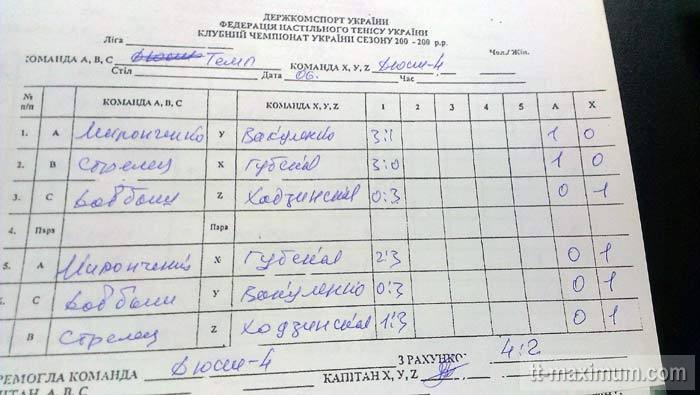 ДЕРЖКОМСПОРТ УКРАЇНИ
ФЕДЕРАЦІЯ НАСТІЛЬНОГО ТЕНІСУ УКРАЇНИ
КЛУБНИЙ ЧЕМПІОНАТ УКРАЇНИ СЕЗОНУ 200 -200 р.р.
Ліга Чол./Жін.
КОМАНДА А, В, С Темп КОМАНДА X, У, Z Дюсш-4
Стіл Дата 06. Час
№ п/п КОМАНДА А, В, С КОМАНДА X, У, Z 1 2 3 4 5 А X
1. А Мирончанко У Вакуленко 3:1 1 0
2. В Стрелец X Губская 3:0 1 0
3. С Z Ходзинская 0:3 0 1
4. Пара Пара
5. А Мирончанко X Губская 2:3 0 1
С У Вакуленко 0:3 0 1
В Стрелец Z Ходзинская 1:3 0 1
РЕМОГЛА КОМАНДА Дюсш-4 З РАХУНКО 4:2
ТАН, А, В, С КАПІТАН X, У, Z
tt-maximum.com